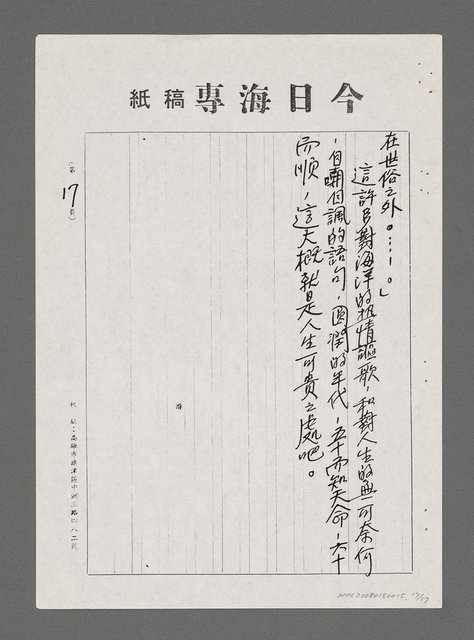 今日海專稿紙
在世俗之外。……。」
這許多對海洋的熱情謳歌，和對人生的無可奈何
，自嘲自諷的語句，圓潤的年代，五十而知天命，六十
而順，這大概就是人生可貴之處吧。
（第17頁）
校址：高雄市旗津區中洲三路四八二號
NMTL20080180015 17/17